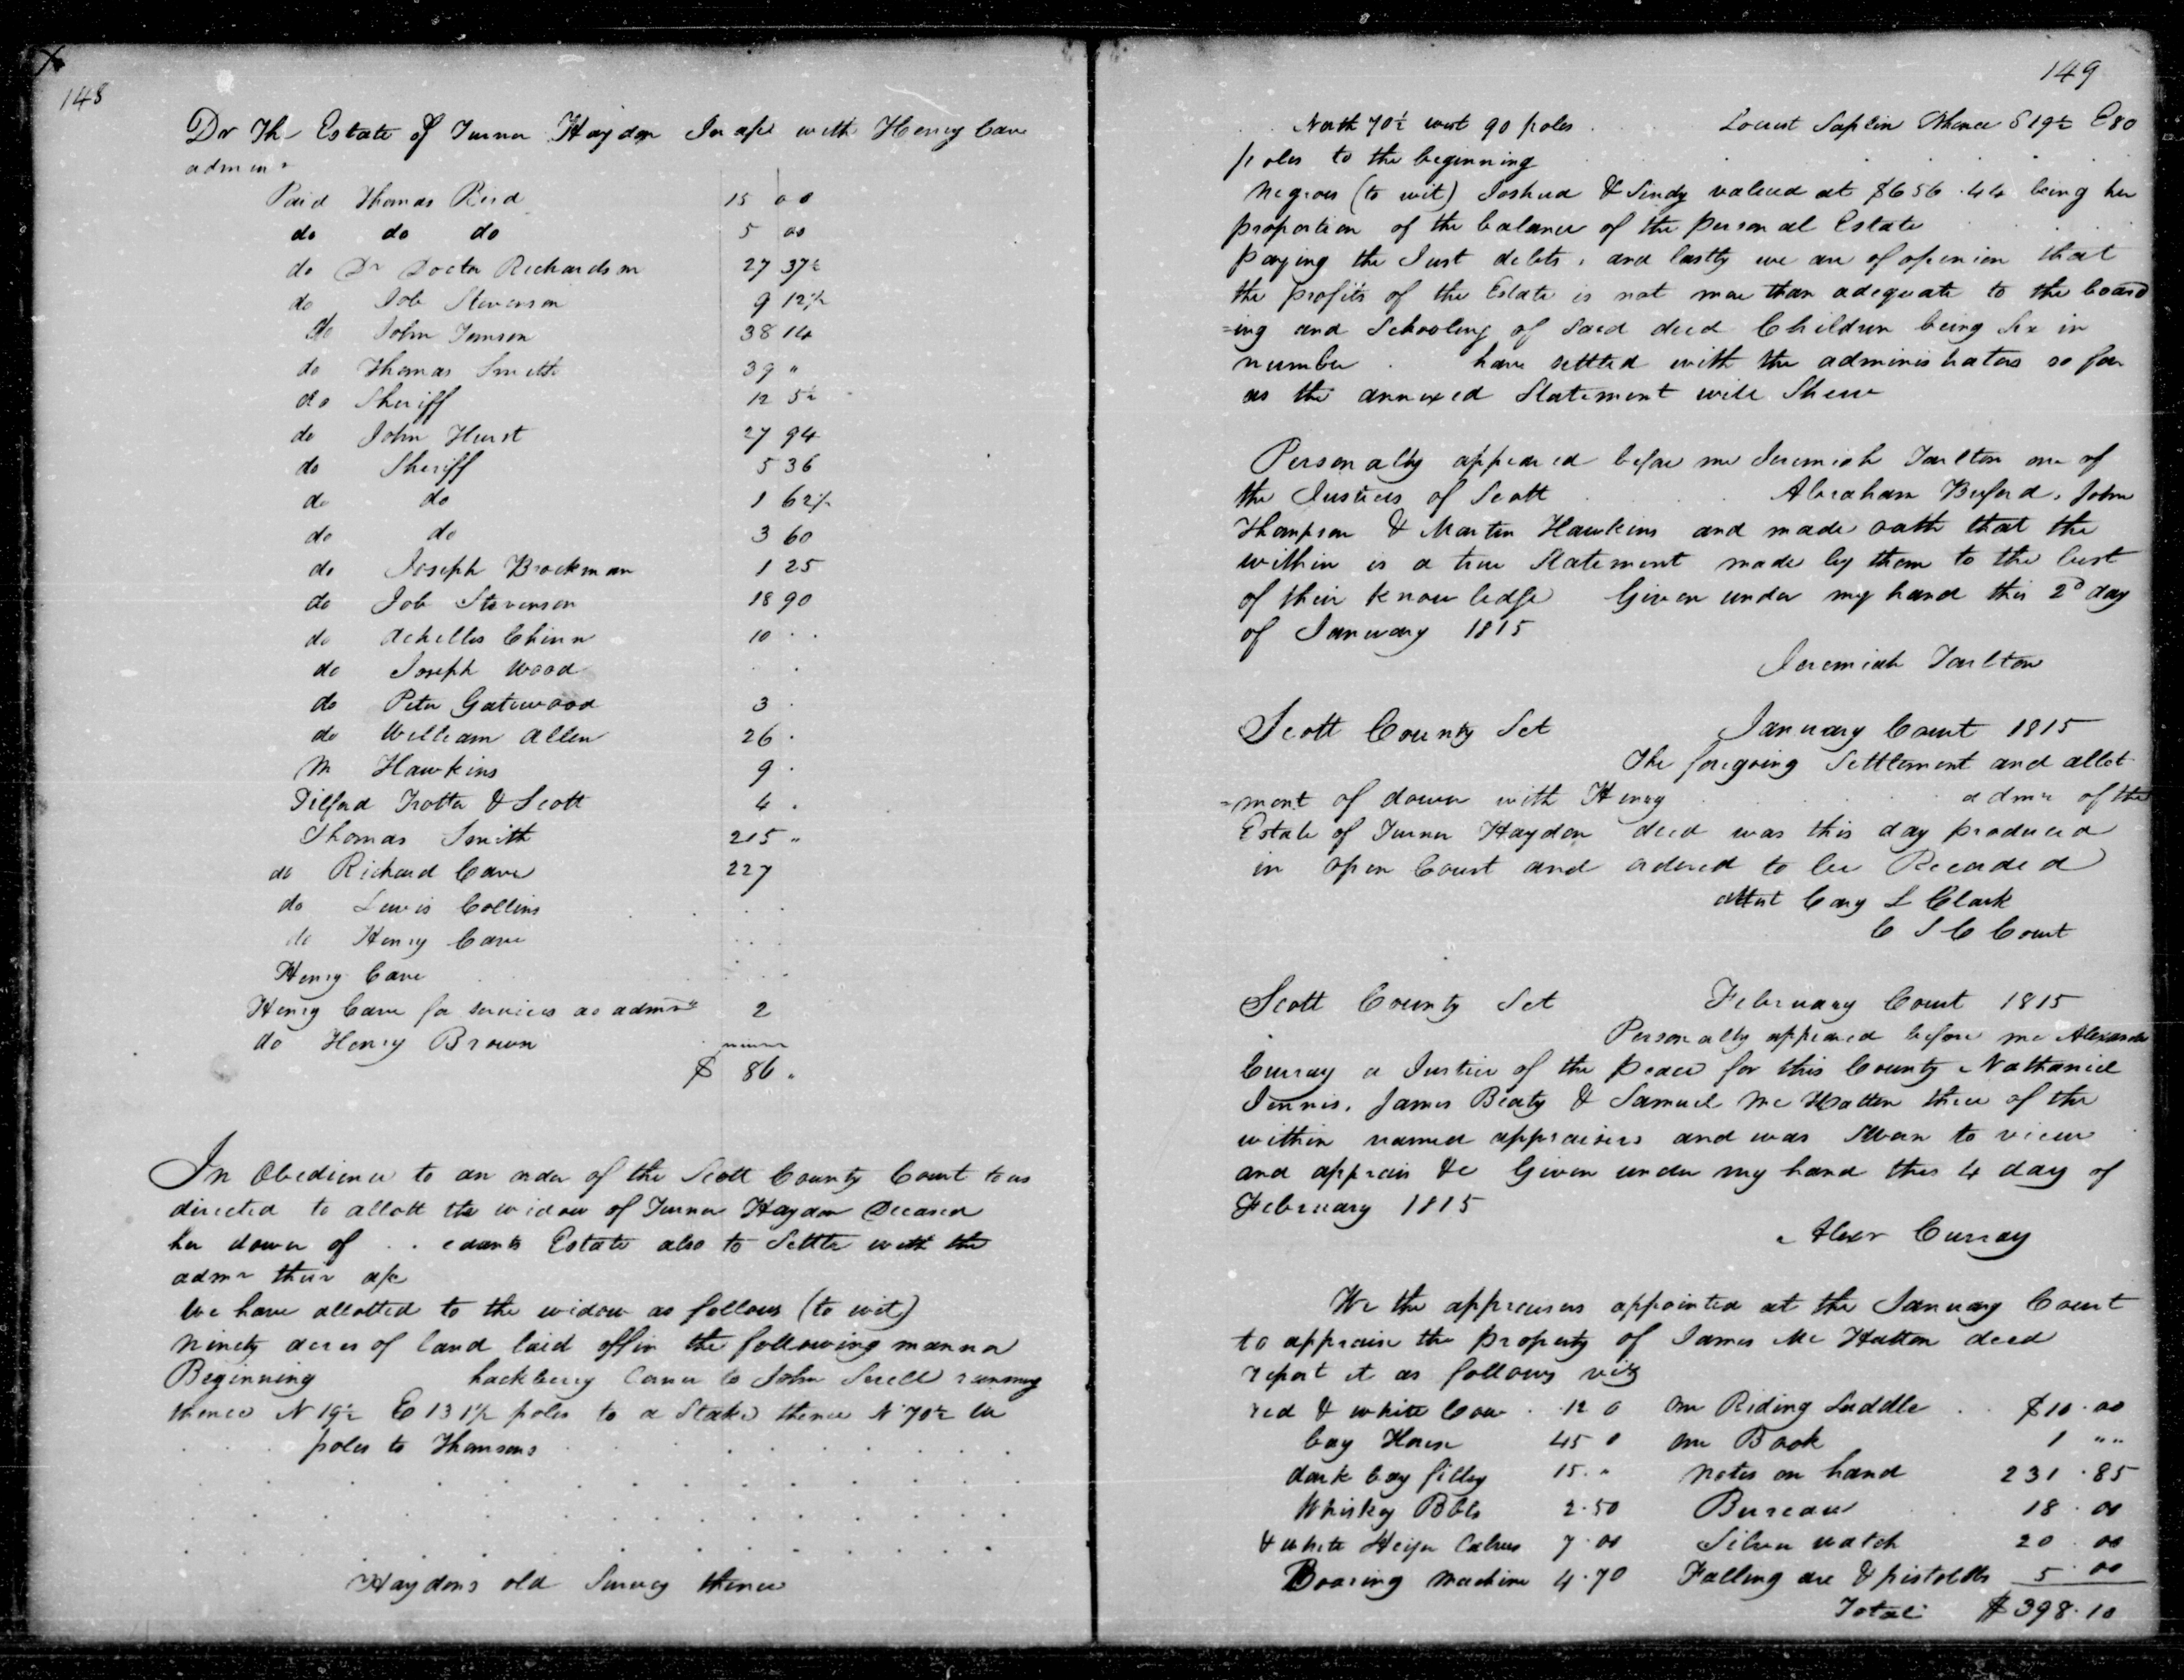 148
Dr The Estate of Turner Haydon In acpt with Henry Cave
admin r
Paid Thomas Reid 15 00
do do do 5 00
do Dr Doctor Richardson 27 37½
do Job Stevenson 9 12½
do John Jamson 38 14
do Thomas Smith 39 "
do Sheriff 12 5½
do John Hurst 27 94
do Sheriff 5 36
do do 1 62½
do do 3 60
do Joseph Brockman 1 25
do Job Stevenson 18 90
do Achilles Chinn 10 . .
do Joseph Wood . .
do Peter Gatewood 3 .
do William Allen 26 .
M Hawkins 9 .
Tilford Trotter & Scott 4 .
Thomas Smith 215 "
do Richard Cave 227
do Lewis Collins . . . .
do Henry Cave . . .
Henry Cave . . . .
Henry Cave for services as admr 2
do Henry Brown
$ 86 .
In Obedience to an order of the Scott County Court to us
directed to allott the widow of Turner Haydon Deceased
her dower of . . edants Estate also to Settle with the
admr their a/c
We have allotted to the widow as follows (to wit)
Ninety acres of land laid off in the following manner
Beginning hackberry Corner to John Suell running
thence N 19½ E 131½ poles to a Stake thence N 70½ W
poles to Thomsons
Haydons old Survey thence
149
North 70½ west 90 poles Locust Saplin Thence S 19½ E 80
poles to the beginning
Negroes (to wit) Joshua & Sindy valued at $656.44 being her
proportion of the balance of the Personal Estate
paying the Just debts, and lastly we are of openion that
the profits of the Estate is not more than adequate to the board
=ing and Schooling of Said decd Children being Six in
number . have settled with the administrators so far
as the annexed Statement will Shew
Personally appeared before me Jeremiah Tarlton one of
the Justices of Scott Abraham Buford, John
Thompson & Martin Hawkins and made oath that the
within is a true Statement made by them to the best
of their knowledge Given under my hand this 2d day
of January 1815
Jeremiah Tarlton
Scott County Sct January Court 1815
The foregoing Settlement and allot
=ment of dower with Henry admr of the
Estate of Turner Haydon decd was this day produced
in open Court and ordered to be Recorded
Attest Cary L Clark
C S C Court
Scott County Sct February Court 1815
Personally appeared before me Alexander
Curray a Justice of the peace for this County Nathaniel
Jennis, James Beaty & Samuel Mc Hatten three of the
within named appraisers and was Sworn to view
and apprais &c Given under my hand this 4 day of
February 1815
Alexr Curray
We the appraisers appointed at the January Court
to appraise the property of James Mc Hatton decd
report it as follows viz
red & white Cow . 12 0 one Riding Saddle . . $10.00
bay Horse 45 0 one Book 1 ""
dark bay filley 15. " Notes on hand 231.85
Whiskey Bbls 2.50 Bureau 18.00
& white Heifer Calves 7.00 Silver watch 20.00
Boaring Machine 4.70 Falling axe & pistolls 5.00
Total $398.10